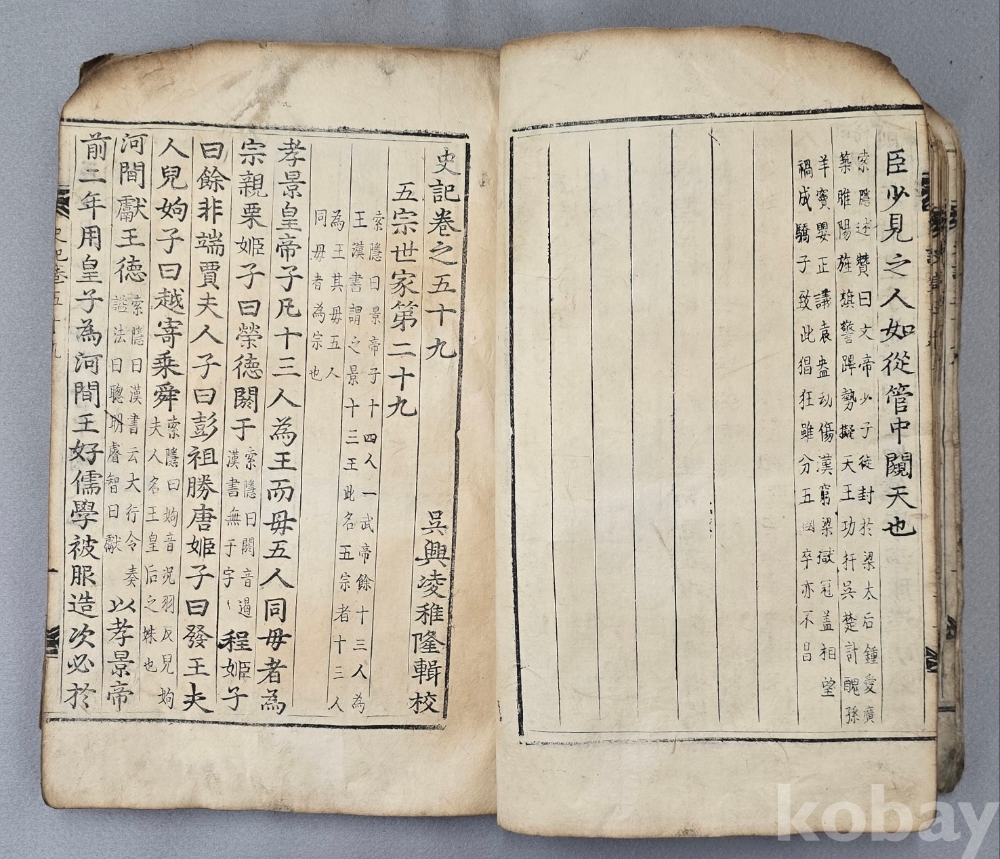 臣少見之人如從管中闚天也
索隱述贊曰文帝少子徙封於梁太后鍾愛廣
築睢陽旌旗警蹕勢擬天王功扞吳楚計醜孫
羊竇嬰正議袁盎劫傷漢窮梁獄冠盖相望
禍成驕子致此猖狂雖分五國卒亦不昌
史記卷之五十九
吳興凌稚隆輯校
五宗世家第二十九
索隱曰景帝子十四人一武帝餘十三人為
王漢書謂之景十三王此名五宗者十三人
為王其母五人
同母者為宗也
孝景皇帝子凡十三人為王而母五人同母者為
宗親栗姬子曰榮德閼于
索隱曰閼音遏
漢書無于字
程姬子
曰餘非端賈夫人子曰彭祖勝唐姬子曰發王夫
人兒姁子曰越寄乘舜
索隱曰姁音况羽反兒姁
夫人名王皇后之妹也
河間獻王德
索隱曰漢書云大行令奏
謚法曰聰明睿智曰獻
以孝景帝
前二年用皇子為河間王好儒學被服造次必於
kobay